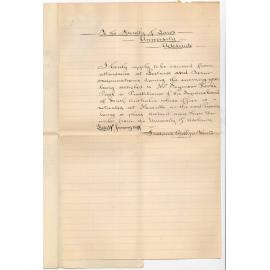 To the Faculty of Laws
University
Adelaide
I hereby apply to be excused from
attendance at lectures and Term
examinations during the ensuing year
being articled to Mr
a Practitioner of the Supreme Court
of South Australia whose office is
situated at the said
being a place distant more than ten
miles from the University of Adelaide
January
Frederick